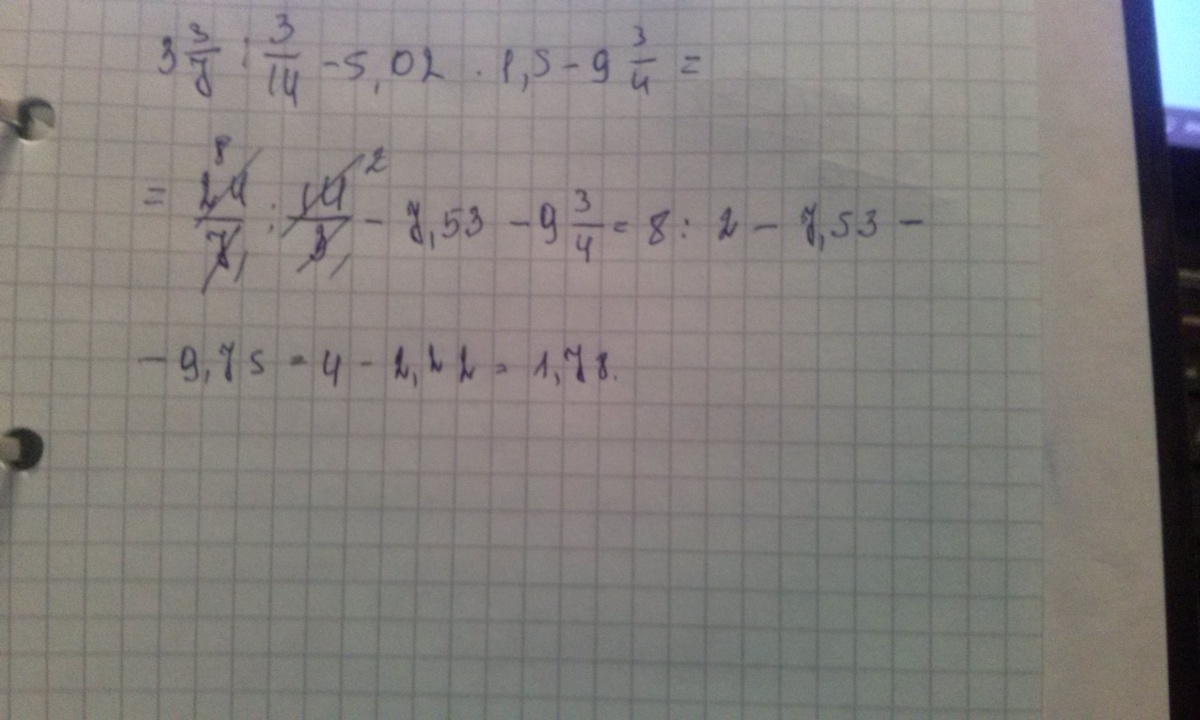 3 3/7 : 3/14 - 5,02 · 1,5 - 9 3/4 =
= 24/7 8 : 14/3 2 - 7,53 - 9 3/4 = 8 : 2 - 7,53 -
- 9,75 = 4 - 2,22 = 1,78.